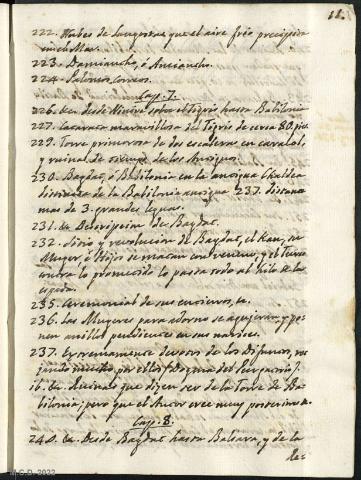 11.
222. Nubes de Langostas que el aire frio precipita
en el Mar.
223. Damiancho, ó Amiancho.
224. Palomos Correos.
Cap. 7.
226. &a. desde Ninive sobre el Tigris hasta Babilonia
227. Cataracta maravillosa del Tigris de cerca 80. pies
229. Torre primorosa de dos escaleras en caracol,
y ruinas de de los Antiguos.
230. Bagdat, ó Babilonia en la antigua Chaldea
distincta de la Babilonia antigua 237. distante
mas de 3. grandes leguas.
231. &a. Descripcion de Bagdat.
232. Sitio y revolucion de Bagdat, el Kan, su
Muger é Hijos se matan con veneno, y el Turco
contra lo prometido lo pasta todo al hilo de la
espada.
235. Ceremonial de sus entierros, &a.
236. Las Mugeres para adorno se agujeran, y po-
nen anillos pendientes en sus narices.
237. Extremamente devotos de los Difuntos, ro-
gando mucho por ellos: Dogma del Purgatorio?
ib. &a. Ruinas que dizen ser de la Torre de Ba-
bilonia; pero que el Autor cree muy posteriores.
Cap. 8.
240. &a. Desde Bagdat hasta Balsara, y de la
Re-
M.C.D. 2022